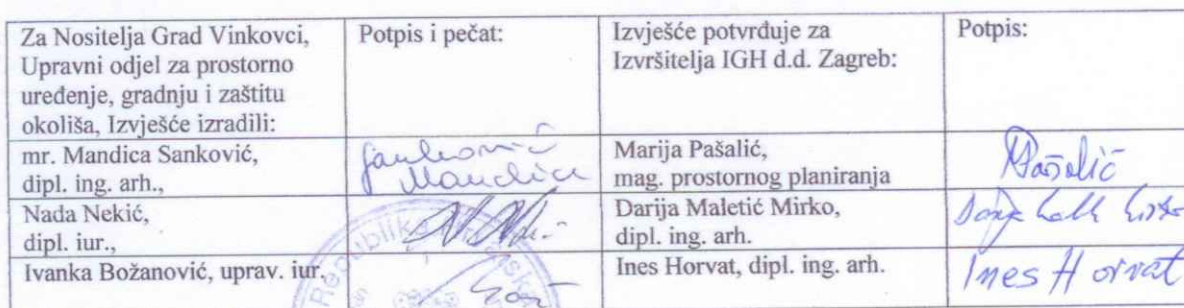 Za Nositelja Grad Vinkovci,
Upravni odjel za prostorno
uređenje, gradnju i zaštitu
okoliša, Izvješće izradili:
Potpis i pečat:
Izvješće potvrđuje za
Izvršitelja IGH d.d. Zagreb:
Potpis:
mr. Mandica Sanković,
dipl. ing. arh.,
Sanković
Mandica
Marija Pašalić,
mag. prostornog planiranja
Pašalić
Nada Nekić,
dipl. iur.,
Darija Maletić Mirko,
dipl. ing. arh.
Ivanka Božanović, uprav. iur.
Republika
Ines Horvat, dipl. ing. arh.
Ines Horvat